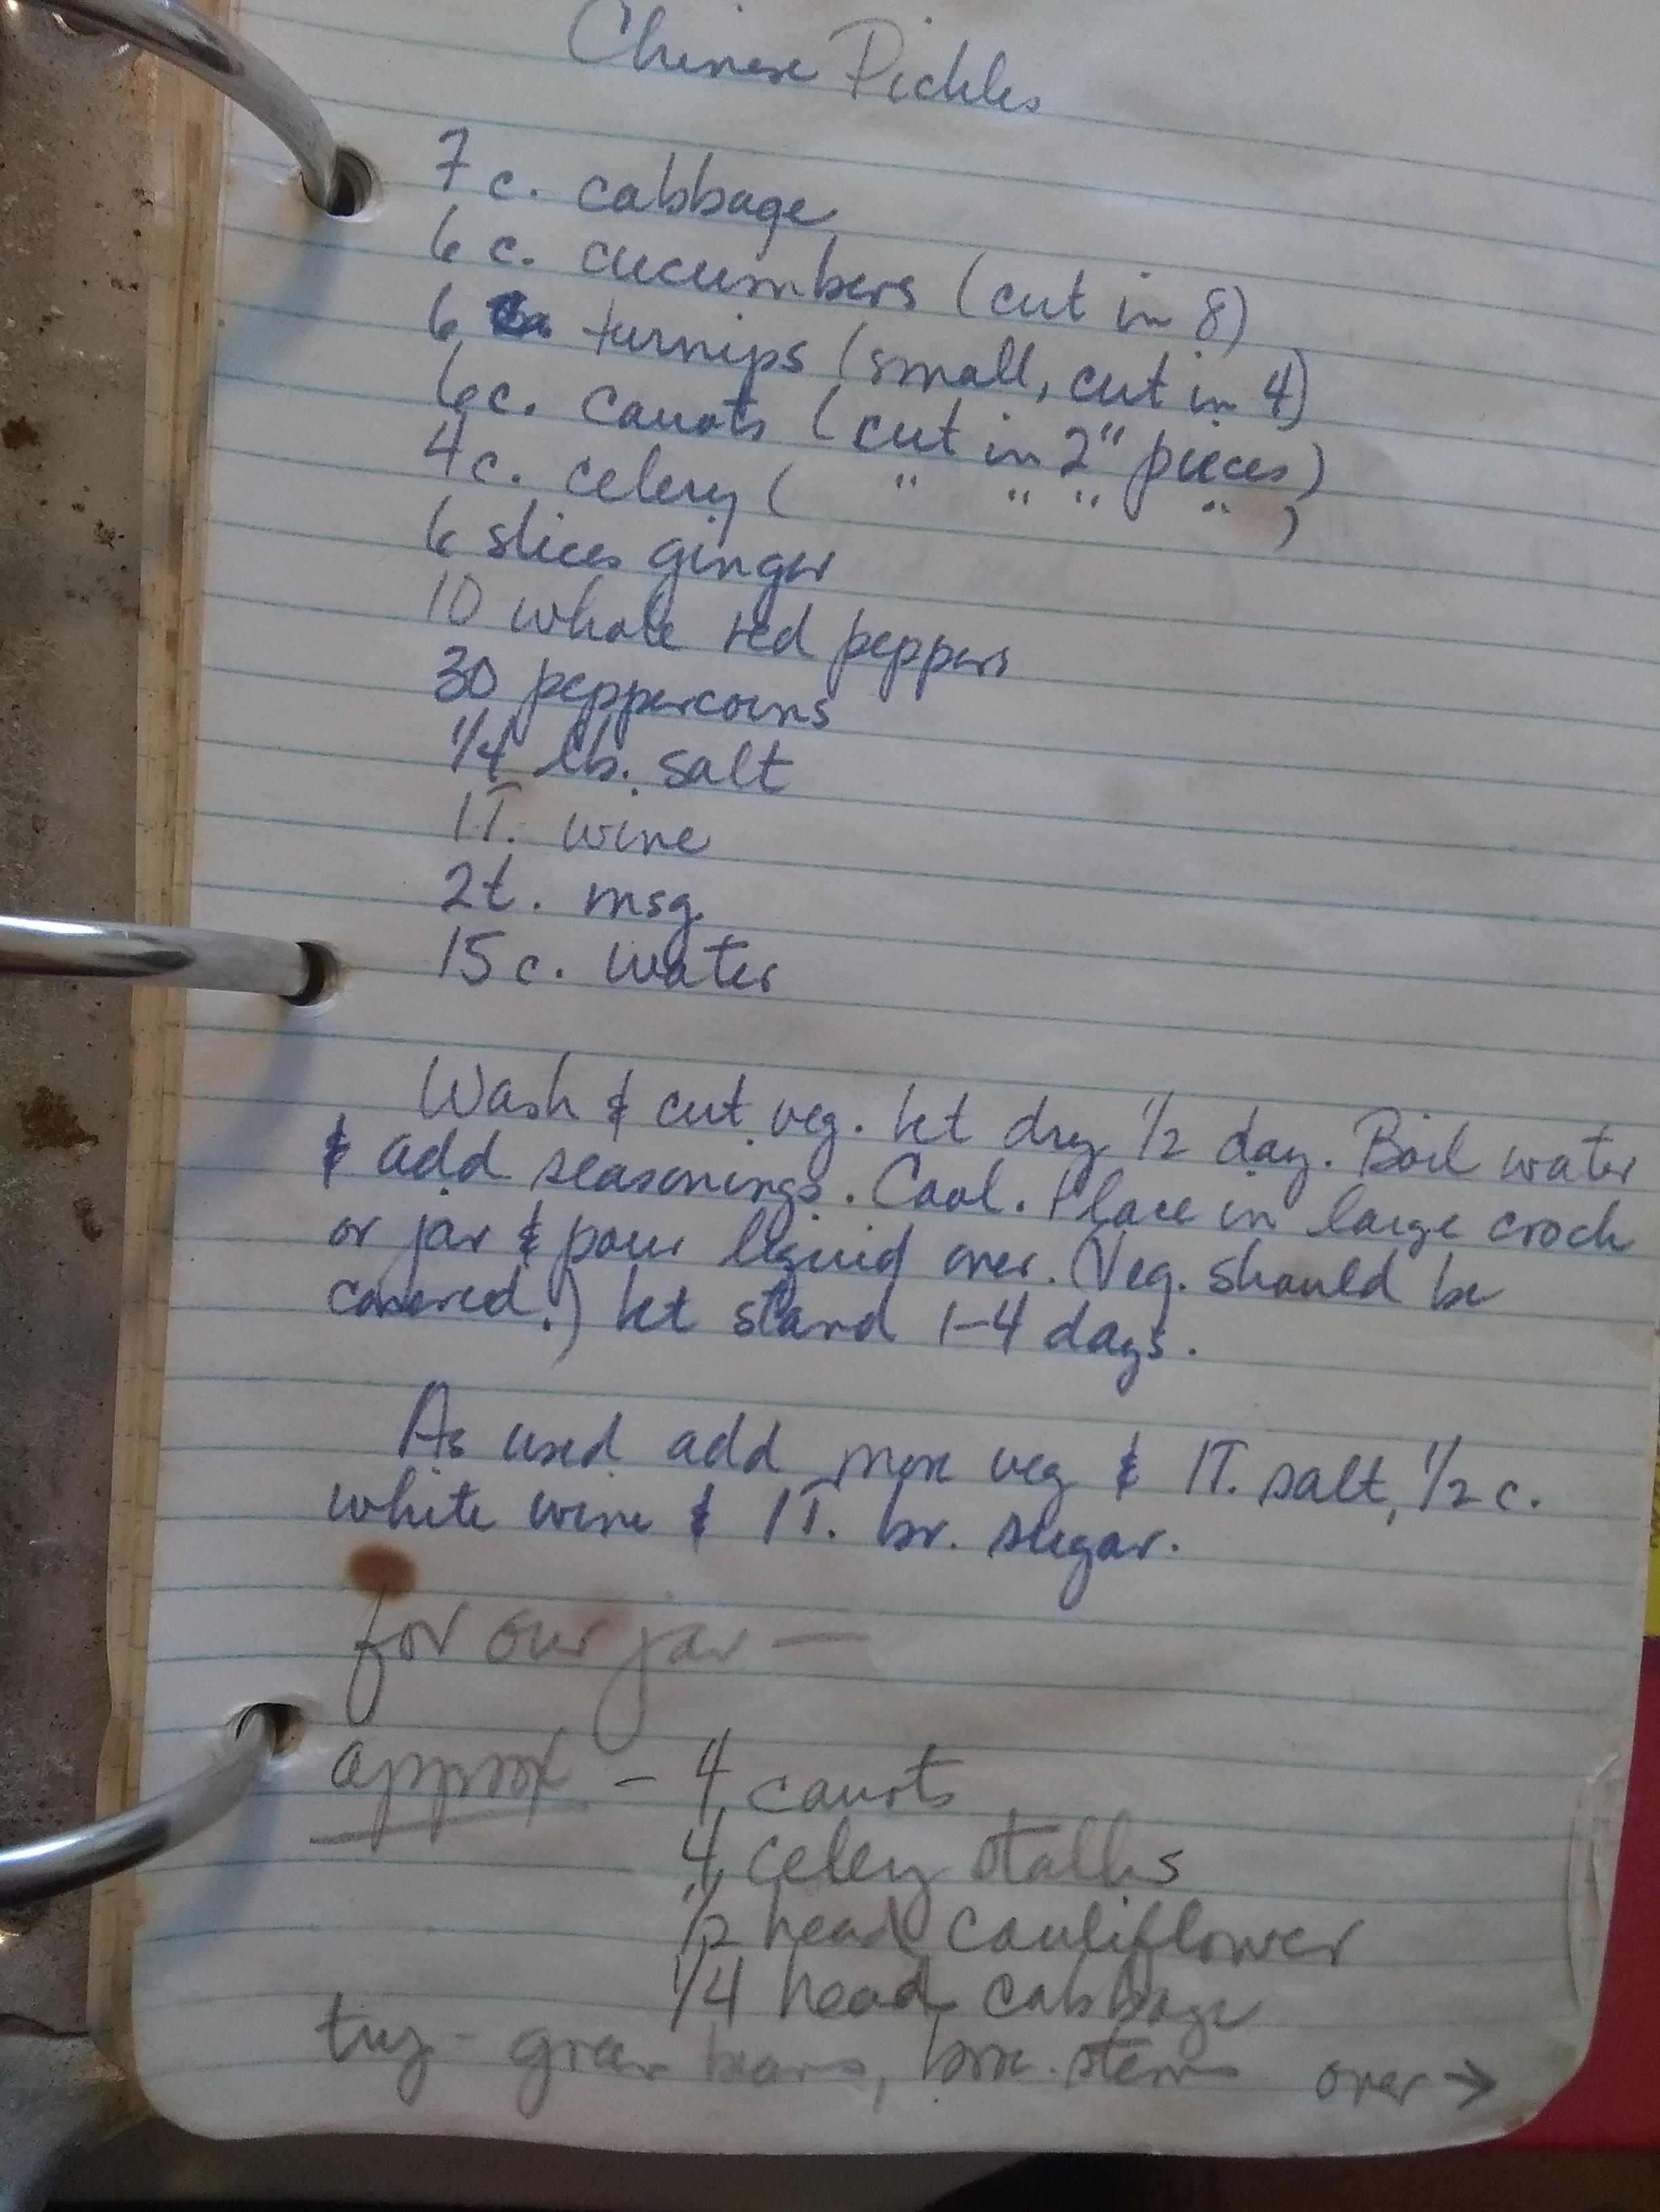 Chinese Pickles
7 c. cabbage
6 c. cucumbers (cut in 8)
6 turnips (small, cut in 4)
6 c. carrots (cut in 2" pieces)
4 c. celery ( " " " " )
6 slices ginger
10 whole red peppers
30 peppercorns
1/4 lb. salt
1T. wine
2t. msg.
15 c. water
Wash & cut veg. let dry 1/2 day. Boil water
& add seasonings. Cool. Place in large crock
or jar & pour liquid over. (Veg. should be
covered.) let stand 1-4 days.
As used add more veg & 1T. salt, 1/2 c.
white wine & 1T. br. sugar.
for our jar —
approx. - 4 carrots
4 celery stalks
1/2 head cauliflower
1/4 head cabbage
try - green beans, broc. stems over →